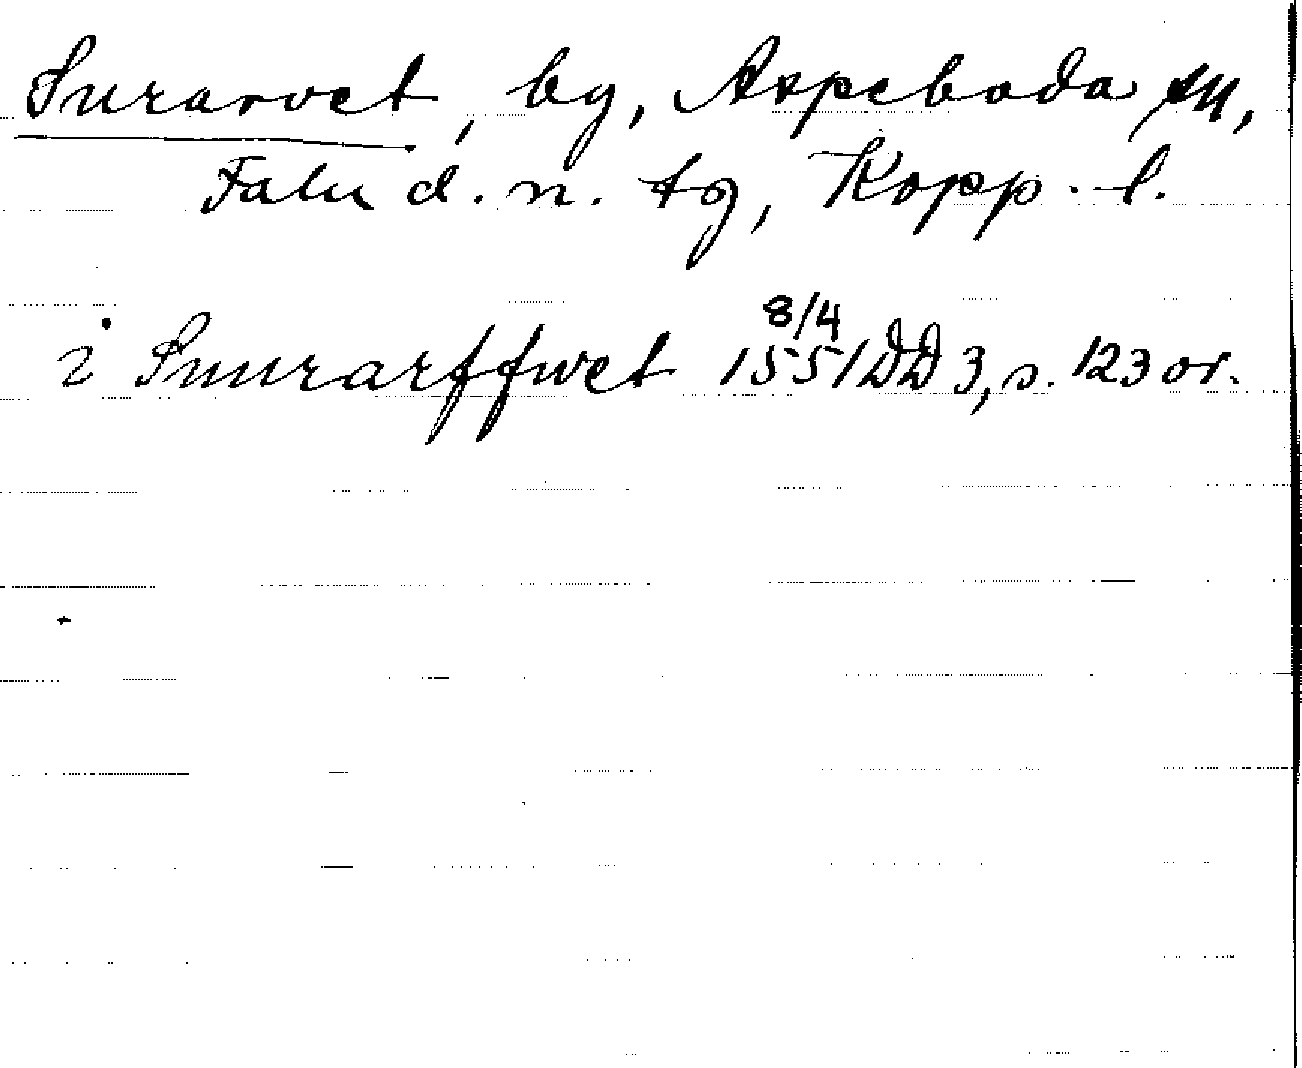 Snrarvet, by, Aspeboda sn,
Falu d. n. tg, Kopp. l.
i Snurarffwet 8/4 1551 DD 3, s. 123 or.